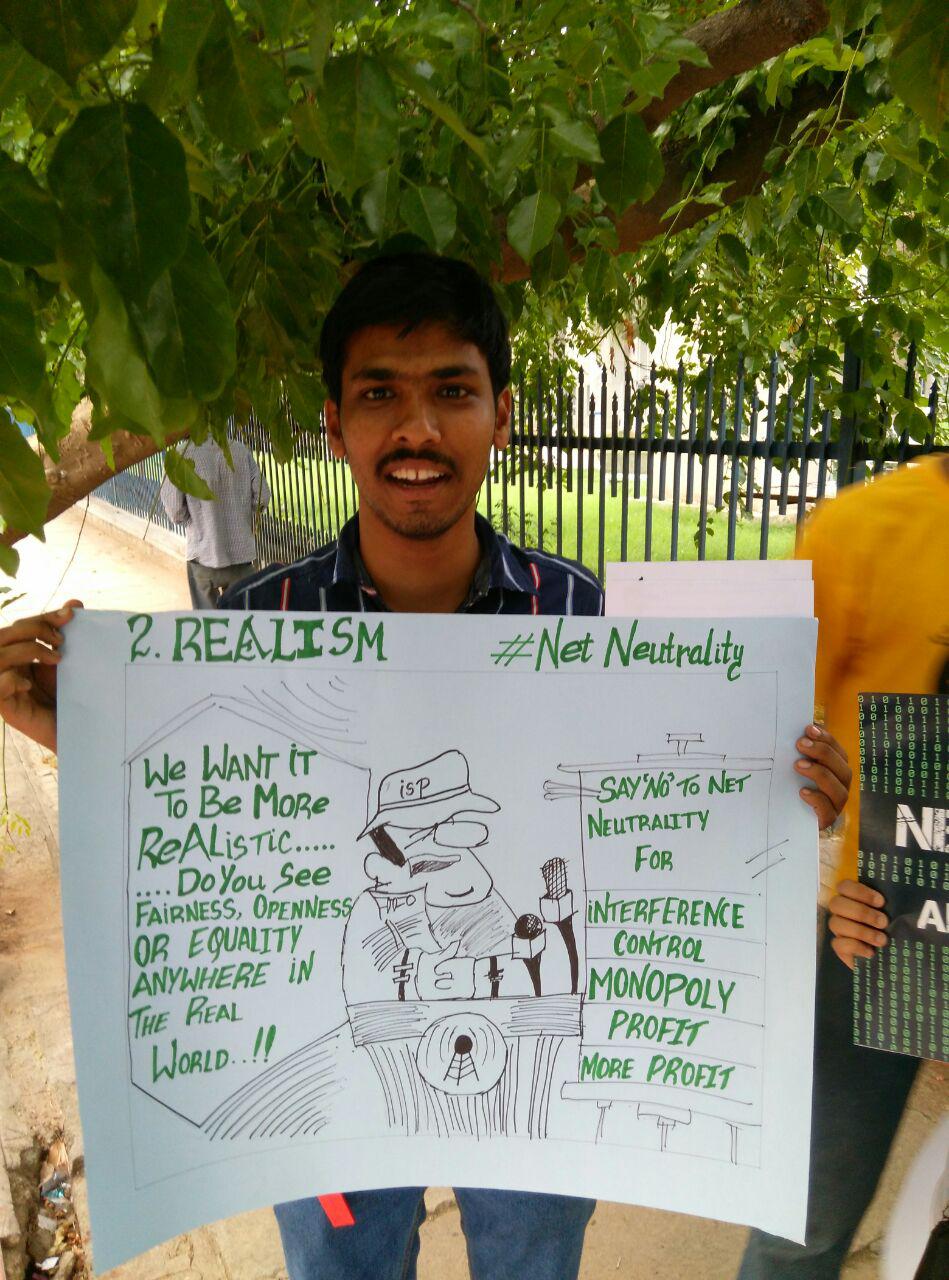 2. REALISM
#Net Neutrality
We WANT iT
To Be More
ReALisTic.....
....Do You See
FAIRNESS, OPENNESS
OR EQUALITY
ANYWHERE iN
THE REAL
WORLD..!!
isP
SAY 'NO' To NET
NEUTRALITY
FOR
iNTERFERENCE
CONTROL
MONOPOLY
PROFIT
MORE PROFIT